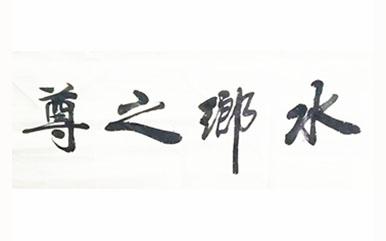 水鄉之尊